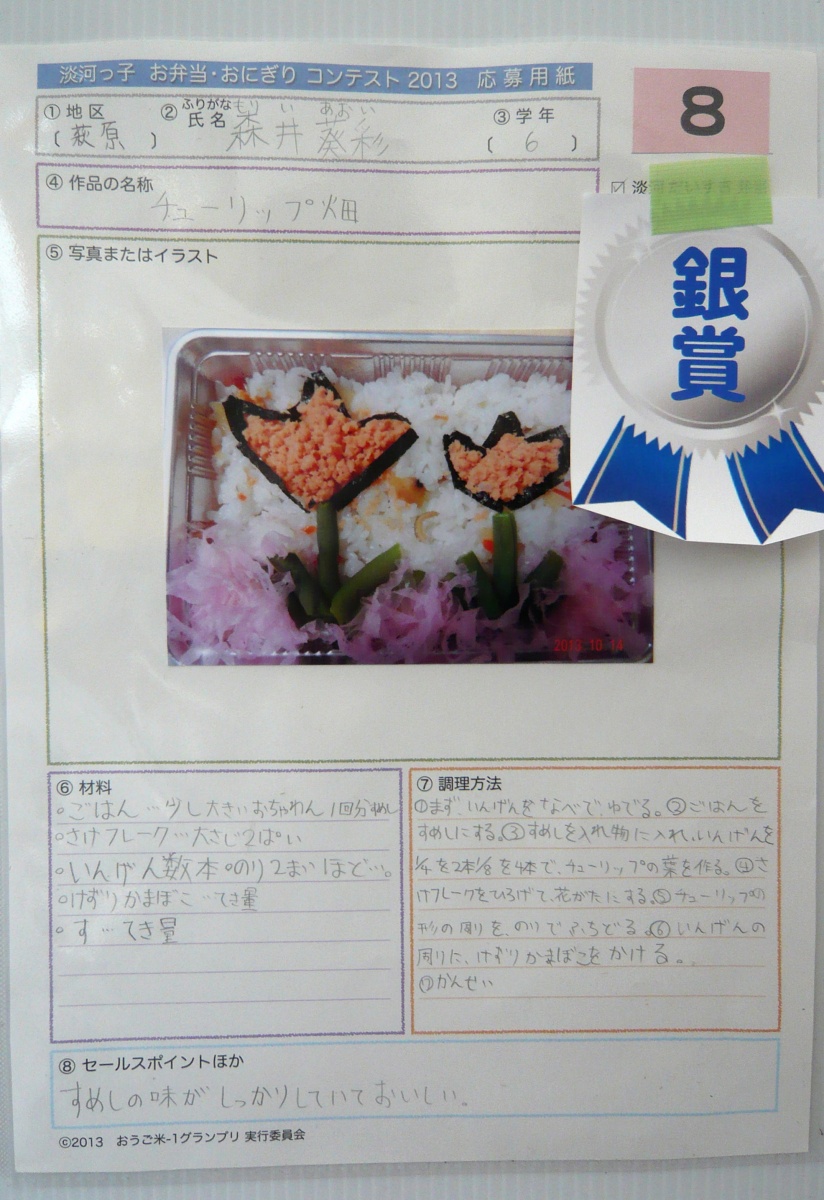 淡河っ子 お弁当・おにぎり コンテスト 2013 応募用紙
8
① 地区
(萩原)
② ふりがな もりい あおい
氏名 森井 葵彩
③ 学年
(6)
④ 作品の名称
チューリップ畑
☑ 淡
銀賞
⑤ 写真またはイラスト
2013.10.14
⑥ 材料
・ごはん…少し大きいおちゃわん1回分
・さけフレーク…大さじ2はい
・いんげん数本 ・のり2まいほど…。
・けずりかまぼこ…てき量
・す…てき量
⑦ 調理方法
①まず、いんげんをなべで、ゆでる。②ごはんを
すめしにする。③すめしを入れ物に入れ、いんげんを
1/4を2本1/8を4本で、チューリップの葉を作る。④さ
けフレークをひろげて、花がたにする。⑤チューリップの
形の周りを、のりでふちどる。⑥いんげんの
周りに、けずりかまぼこをかける。
⑦かんせい
⑧ セールスポイントほか
すめしの味がしっかりしていておいしい。
©2013 おうご米-1グランプリ 実行委員会